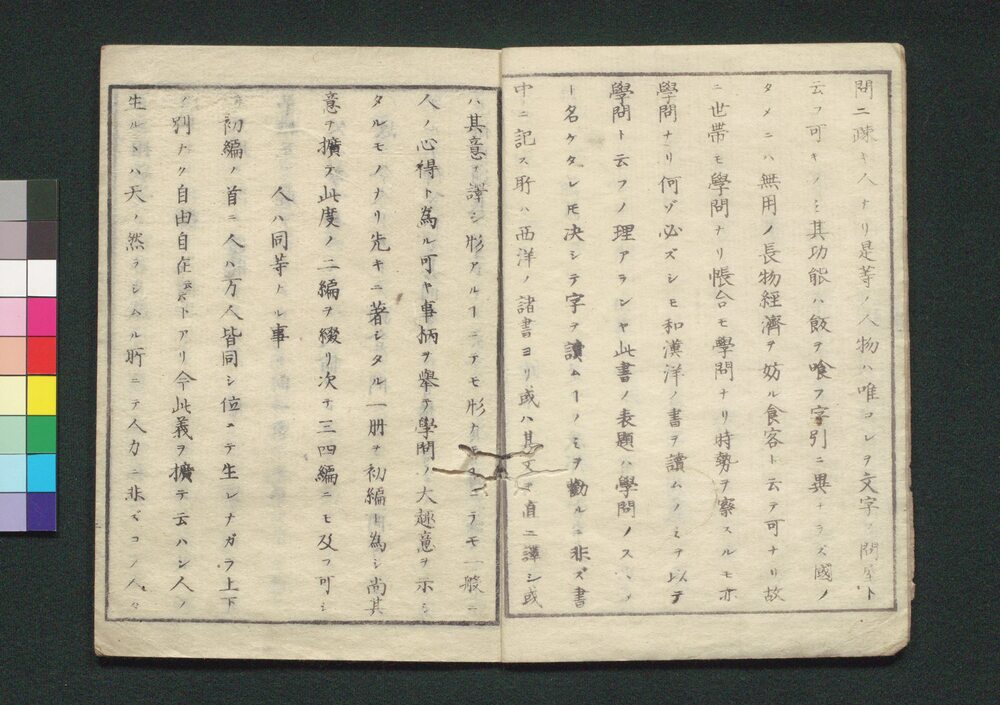 問ニ疎キ人ナリ是等ノ人物ハ唯コレヲ文字ノ問屋ト
云フ可キノミ其功能ハ飯ヲ喰フ字引ニ異ナラズ國ノ
タメニハ無用ノ長物經濟ヲ妨ル食客ト云テ可ナリ故
ニ世帯モ學問ナリ帳合モ學問ナリ時勢ヲ察スルモ亦
學問ナリ何ゾ必ズシモ和漢洋ノ書ヲ讀ムノミヲ以テ
學問ト云フノ理アランヤ此書ノ表題ハ學問ノスヽメ
ト名ケタレ𪜈决シテ字ヲ讀ムヿノミヲ勸ルニ非ズ書
中ニ記ス所ハ西洋ノ諸書ヨリ或ハ其文ヲ直ニ譯シ或
ハ其意ヲ譯シ形アルヿニテモ形ナキヿニテモ一般ニ
人ノ心得ト為ル可キ事柄ヲ舉テ學問ノ大趣意ヲ示シ
タルモノナリ先キニ著シタル一册ヲ初編ト為シ尚其
意ヲ擴テ此度ノ二編ヲ綴リ次テ三四編ニモ及フ可シ
人ハ同等ナル事
初編ノ首ニ人ハ万人皆同シ位ニテ生レナガラ上下
ノ別ナク自由自在云々トアリ今此義ヲ擴テ云ハン人ノ
生ルヽハ天ノ然ラシムル所ニテ人力ニ非ズコノ人々